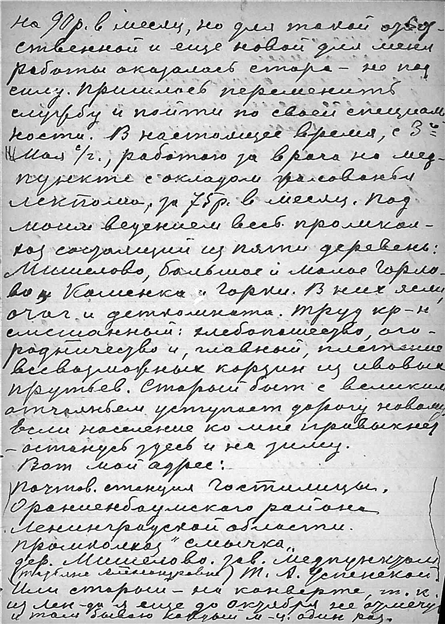 на 90р. в месяц, но для такой ответ-
ственной и еще новой для меня
работы оказалась стара – не под
силу. Пришлось переменить
службу и пойти по своей специаль
ности. В настоящее время, с 3го
Мая с/г., работаю за врача на мед-
пункте с окладом
лекпома, за 75р. в месяц. Под
моим ведением весь промкол-
хоз состоящий из пяти деревень:
Мишелово, большое и малое Горло-
во, Каменка и Горки. В них ясли
очаг и деткомната. Труд кр-н
смешанный: хлебопашество, ого-
родничество и, главный, плетение
всевозможных корзин из ивовых
прутьев. Старый быт с великим
отчаяньем уступает дорогу новому
Если население ко мне привыкнет
– останусь здесь и на зиму.
Вот мой адрес:
Почтов. станция Гостилицы,
Ораниенбаумского района
Ленинградской области.
промколхоз "Смычка"
дер. Мишелово. зав. Медпунктом
(Татьяне Александровне) Т. А. Успенской
Или старый – на конверте, т. к.
из Лен-да я еще до октября не
и там бываю каждый м-ц один раз.